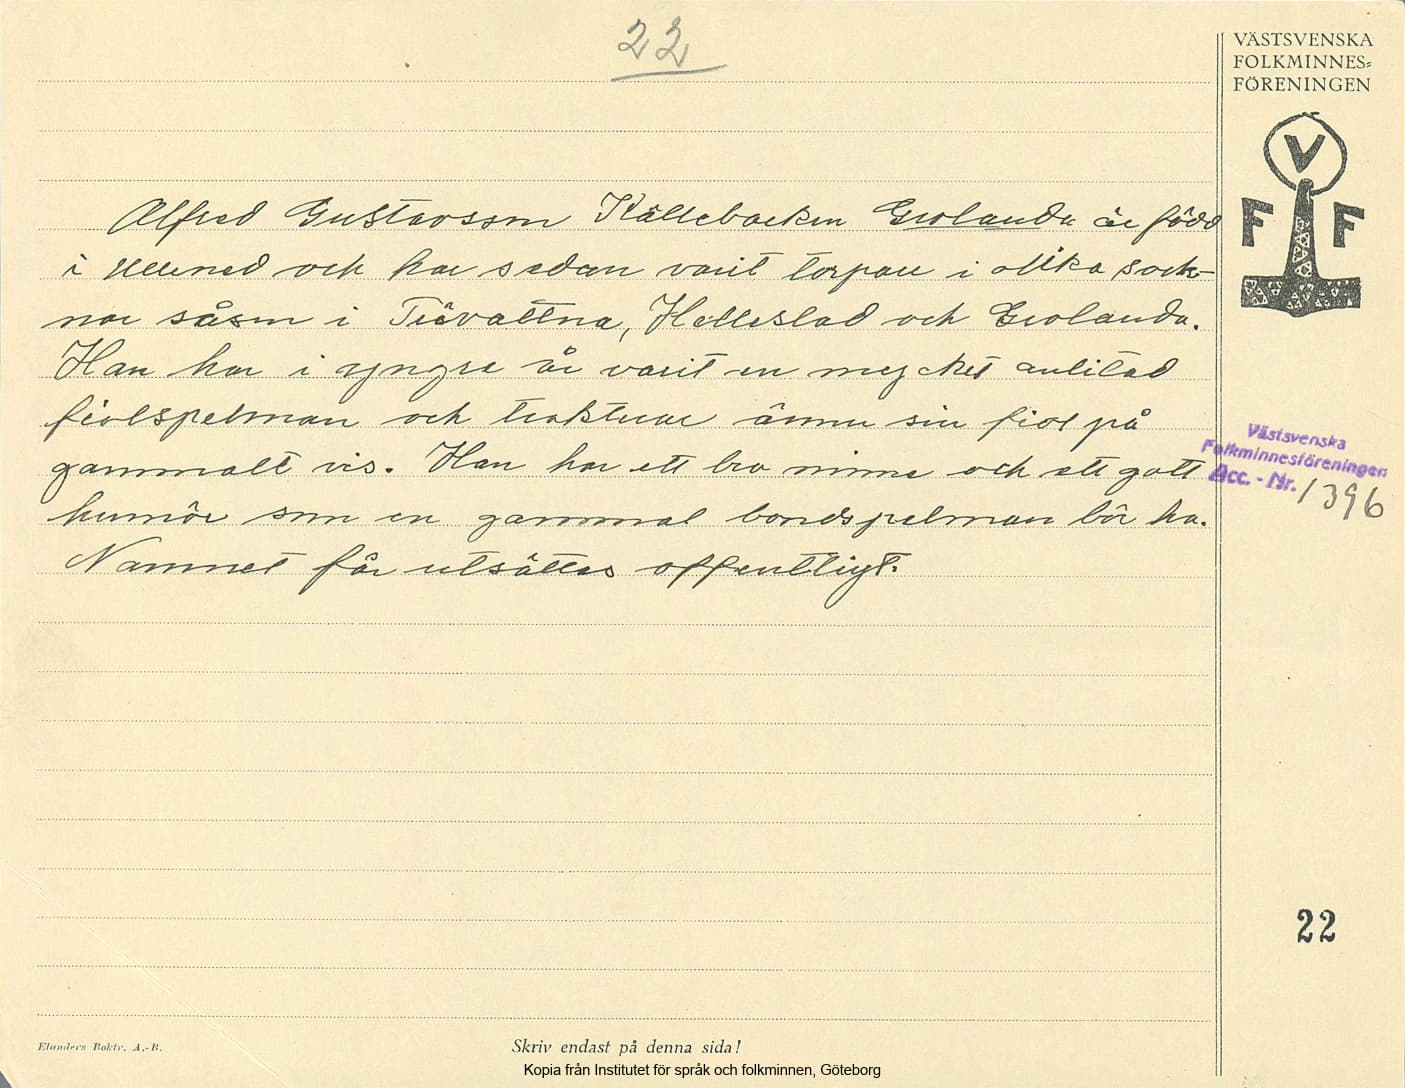 22
VÄSTSVENSKA
FOLKMINNES=
FÖRENINGEN
V
F F
Alfred Gustavsson Källebacken Grolanda är född
i Ullened och har sedan varit torpare i olika sock-
nar såsom i Trävattna, Hälleslad och Grolanda.
Han har i yngre år varit en mycket anlitad
fiolspelman och trakterar ännu sin fiol på
gammalt vis. Han har ett bra minne och ett gott
humör som en gammal bondspelman bör ha.
Namnet får utsättas offentligt.
Västsvenska
Folkminnesföreningen
Acc. - Nr. 1396
22
Elanders Boktr. A.-B.
Skriv endast på denna sida!
Kopia från Institutet för språk och folkminnen, Göteborg